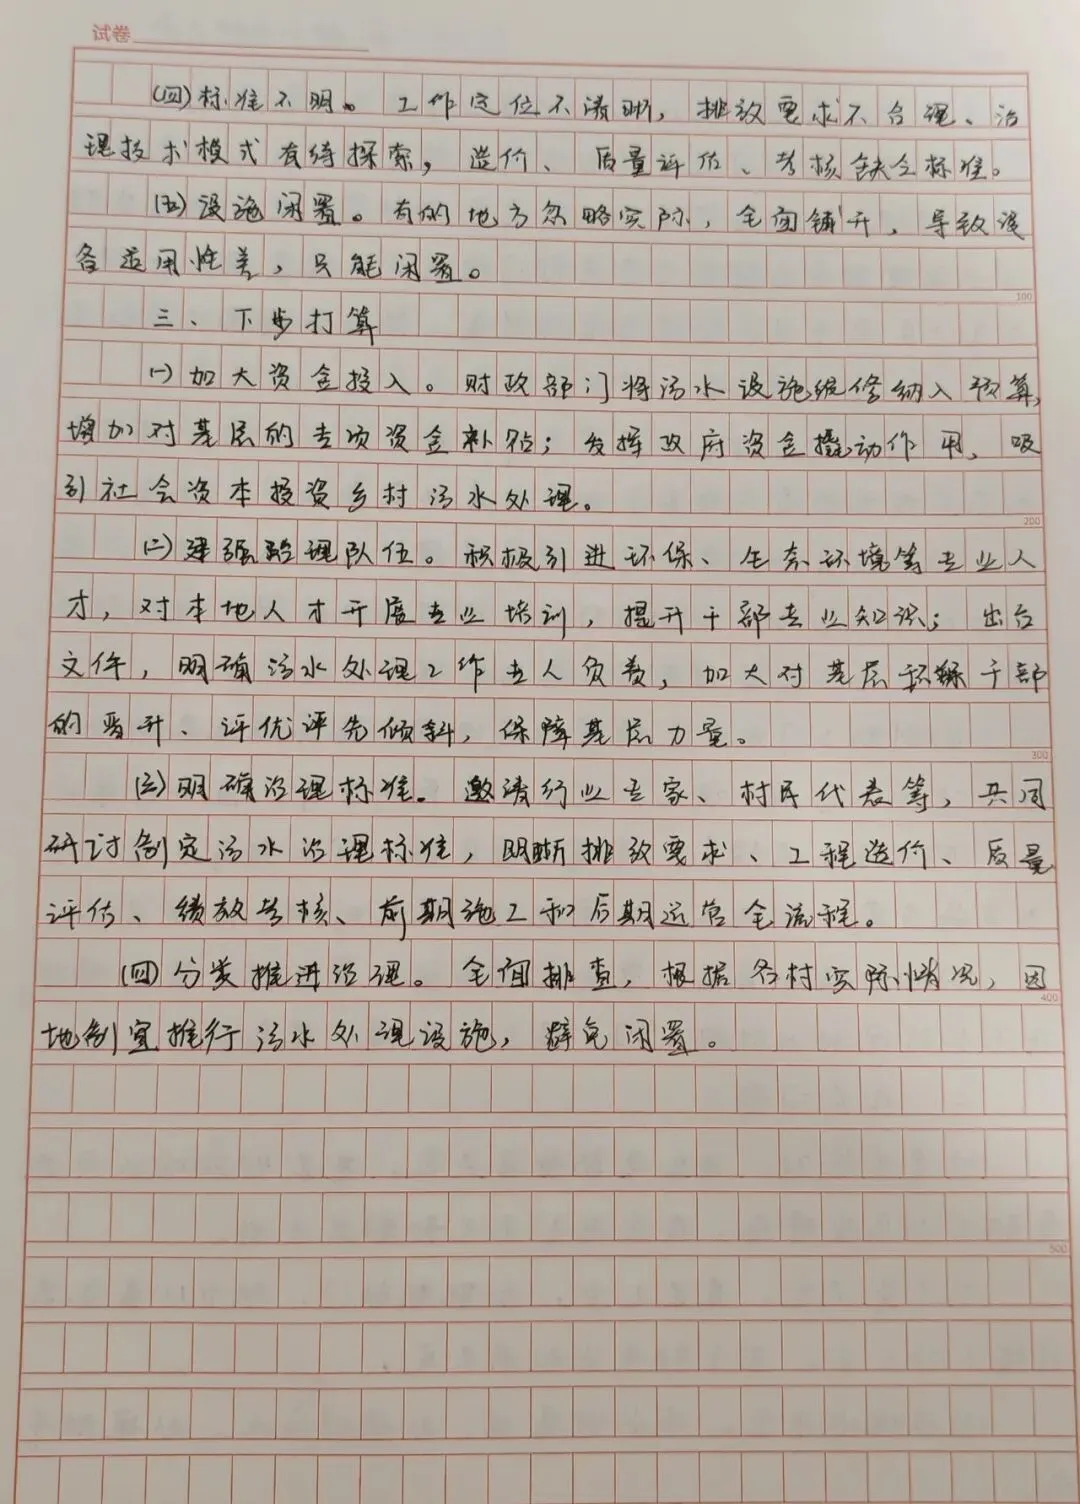 试卷
(四)标准不明。工作定位不清晰，排放要求不合理、治
理技术模式有待探索，造价、质量评估、考核缺乏标准。
(五)设施闲置。有的地方忽略实际，全面铺开，导致设
备适用性差，只能闲置。
100
三、下步打算
(一)加大资金投入。财政部门将污水设施维修纳入预算，
增加对基层的专项资金补贴；发挥政府资金撬动作用，吸
引社会资本投资乡村污水处理。
200
(二)建强治理队伍。积极引进环保、生态环境等专业人
才，对本地人才开展专业培训，提升干部专业知识；出台
文件，明确污水处理工作专人负责，加大对基层积极干部
的晋升、评优评先倾斜，保障基层力量。
300
(三)明确治理标准。邀请行业专家、村民代表等，共同
研讨制定污水治理标准，明晰排放要求、工程造价、质量
评估、绩效考核、前期施工和后期运营全流程。
(四)分类推进治理。全面排查，根据各村实际情况，因
400
地制宜推行污水处理设施，避免闲置。
500